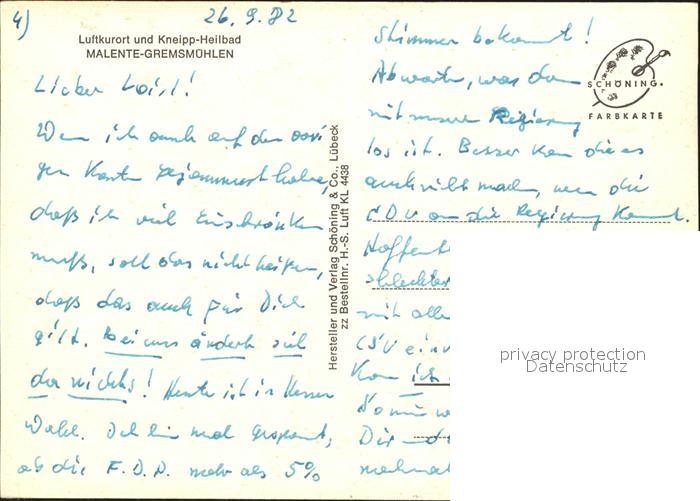 4)
26.9.82
Luftkurort und Kneipp-Heilbad
MALENTE-GREMSMÜHLEN
Lieber Loisl!
Wenn ich auch auf der vori
gen Karte gejammert habe,
daß ich viel Einschränken
muß, soll das nicht heißen,
daß das auch für Dich
gilt. Bei uns ändert sich
da nichts! Heute ist in Hessen
Wahl. Ich bin mal gespannt,
ob die F.D.P. mehr als 5%
Hersteller und Verlag Schöning & Co., Lübeck
zz Bestellnr. H.-S. Luft KL 4438
Stimmen bekommt!
Abwarten, was dann
mit unserer Regierung
los ist. Besser kann die es
auch nicht machen, wenn die
CDU an die Regierung kommt.
Hoffent
schlechter
mit alle
CSU
Kann ich
Dir
nochmal
SCHÖNING
FARBKARTE
privacy protection
Datenschutz